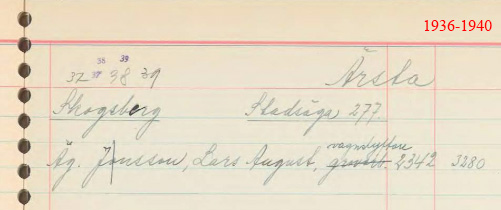 1936-1940
38 39
37 37 38 39 Årsta
Skogsberg Stadsäga 277.
Äg. Jonsson, Lars August, 2342 3280